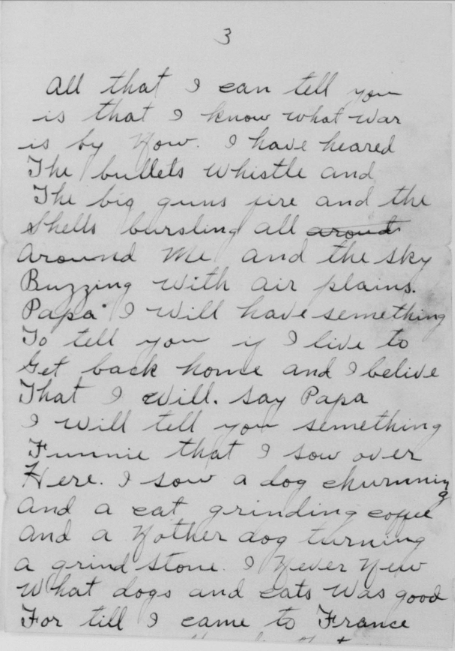 3
All that I can tell you
is that I know what war
is by Now. I have heared
The bullets whistle and
The big guns fire and the
shells bursting all around
around me and the sky
Buzzing with air plains.
Papa I will have something
To tell you if I live to
Get back home and I belive
That I will. say Papa
I will tell you something
Funnie that I sow over
Here. I sow a dog churning
and a cat grinding coffee
and a Nother dog turning
a grind stone. I Never New
What dogs and cats was good
For till I came to France